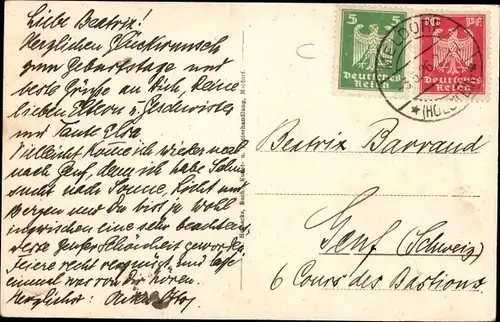 Liebe Beatrix!
Herzlichen Glückwunsch
zum Geburtstage und
beste Grüße an Dich, Deine
lieben Eltern u. Geschwister
und Tante Elsa.
Vielleicht komme ich wieder mal
nach Genf, denn ich habe Sehn
sucht nach Sonne, Licht und
Bergen und Du bist ja wohl
inzwischen eine sehr beachtens
werte Genfer Schönheit geworden.
Feiere recht vergnügt und lasse
einmal was von Dir hören.
Herzlichst:
Buch-, Kunst- u. Papierhandlung, Meldorf.
5 5
Deutsches
Reich
Deutsches
Reich
MELDORF
(HOLST)
Beatrix Barrand
Genf (Schweiz)
6 Cours des Bastions